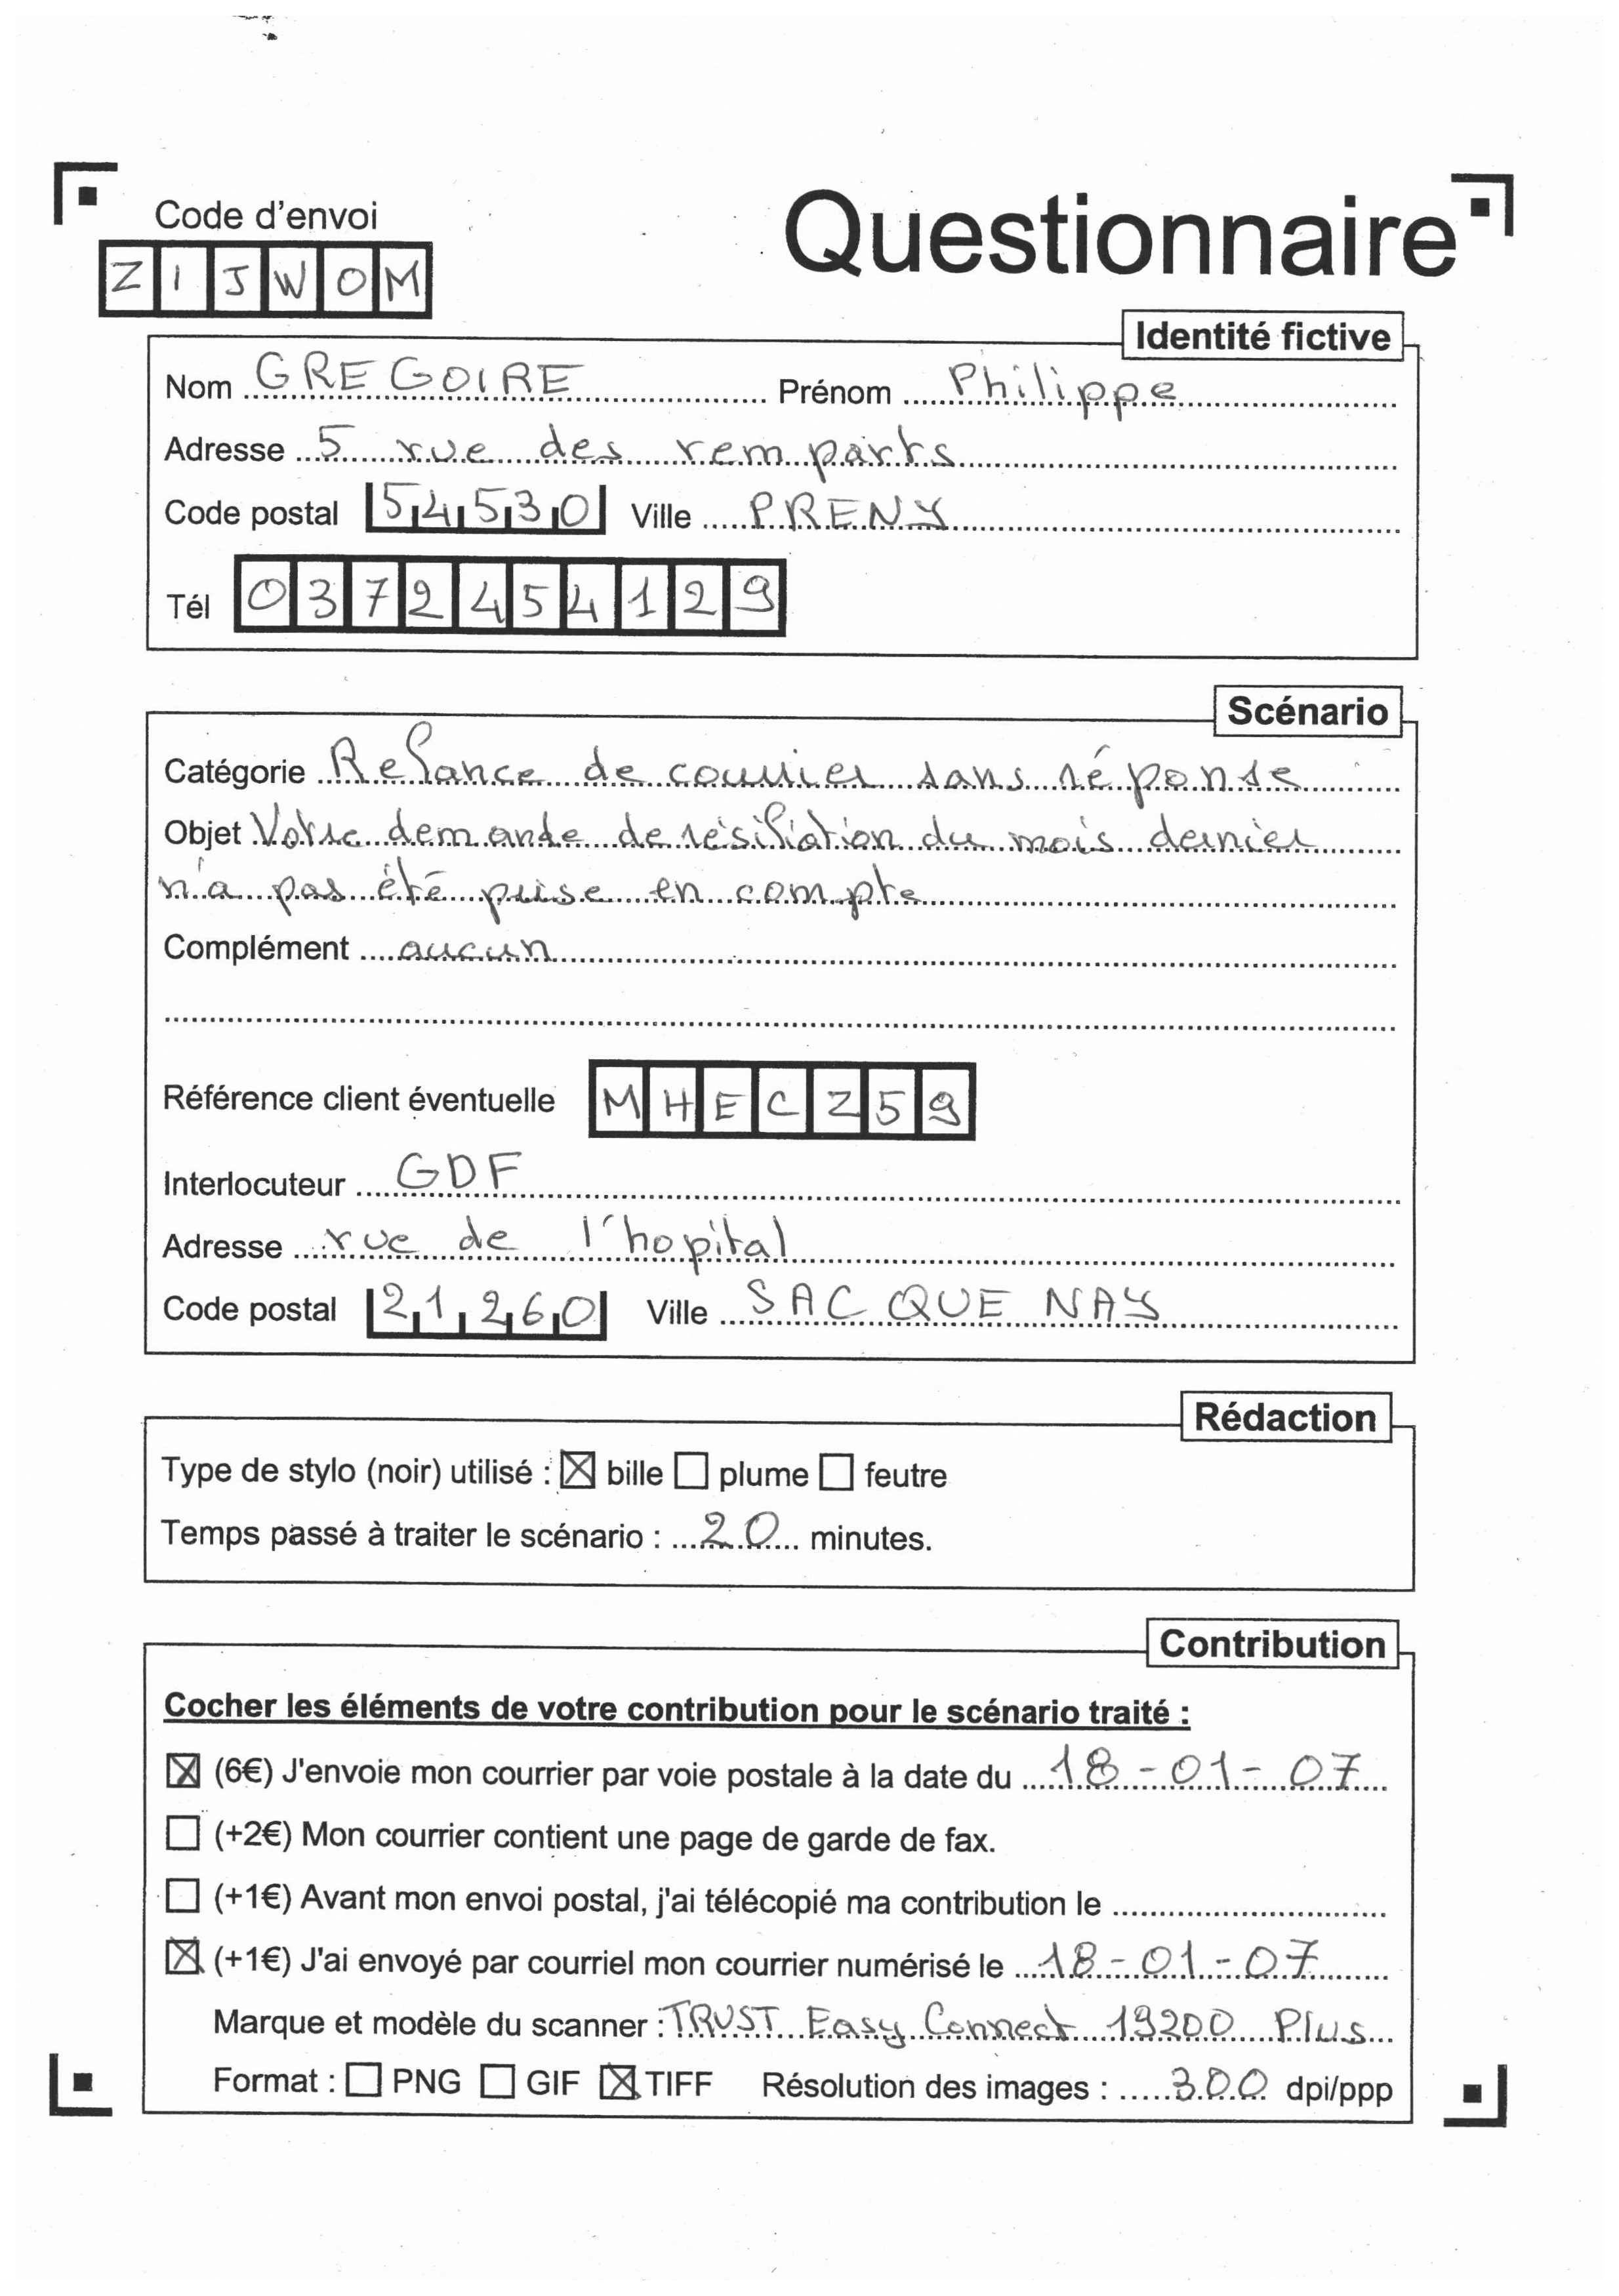 Code d'envoi
Questionnaire
ZIJWOM
Identité fictive
Nom GREGOIRE Prénom Philippe
Adresse 5 rue des remparts
Code postal 54530 Ville PRENY
Tél 0372454129
Scénario
Catégorie Relance de courrier sans réponse
Objet Votre demande de résiliation du mois dernier
n'a pas été prise en compte
Complément aucun
Référence client éventuelle MHECZ59
Interlocuteur GDF
Adresse rue de l'hopital
Code postal 21260 Ville SACQUENAY
Rédaction
Type de stylo (noir) utilisé : ☒ bille ☐ plume ☐ feutre
Temps passé à traiter le scénario : 20 minutes.
Contribution
Cocher les éléments de votre contribution pour le scénario traité :
☒ (6€) J'envoie mon courrier par voie postale à la date du 18-01-07
☐ (+2€) Mon courrier contient une page de garde de fax.
☐ (+1€) Avant mon envoi postal, j'ai télécopié ma contribution le
☒ (+1€) J'ai envoyé par courriel mon courrier numérisé le 18-01-07
Marque et modèle du scanner : TRUST Easy Connect 19200 Plus
Format : ☐ PNG ☐ GIF ☒ TIFF Résolution des images : 300 dpi/ppp